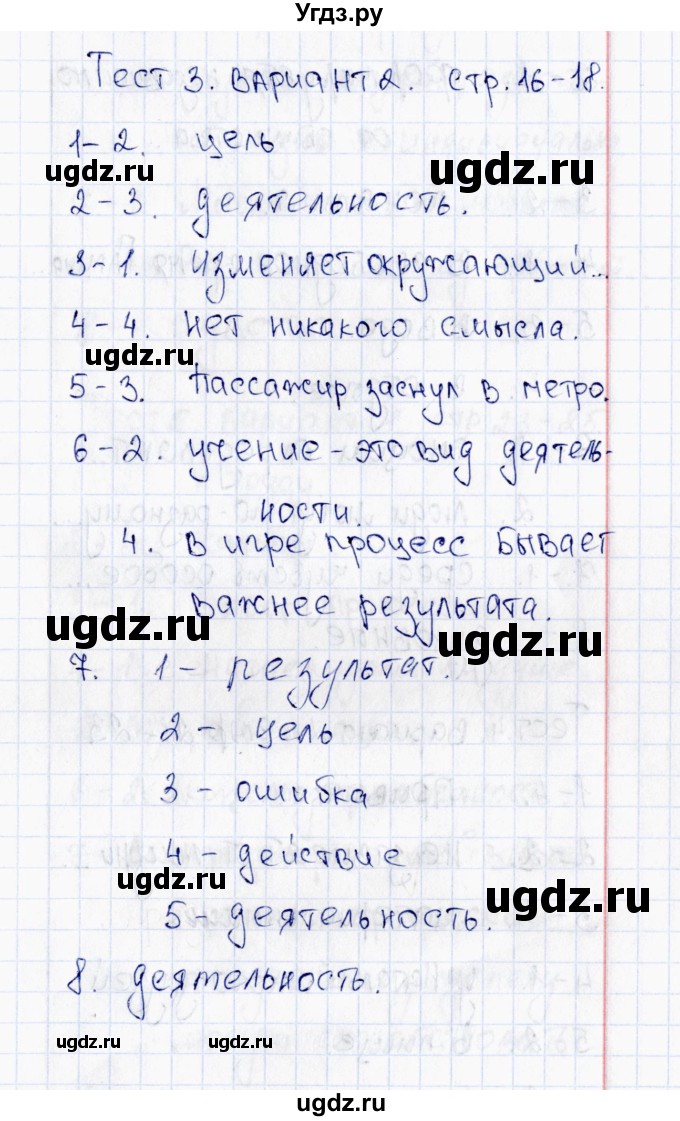 Угдз.ру
Тест 3. вариант 2. стр. 16-18.
1-2. цель
ugdz.ru
ugdz.ru
2-3. деятельность.
3-1. изменяет окружающий...
4-4. нет никакого смысла.
ugdz.ru
5-3. Пассажир заснул в метро.
6-2. учение - это вид деятель-
ности.
4. в игре процесс бывает
важнее результата.
ugdz.ru
ugdz.ru
7. 1- результат.
2- цель
3- ошибка
4- действие
ugdz.ru
ugdz.ru
5- деятельность.
8. деятельность.
ugdz.ru
ugdz.ru
ugdz.ru
ugdz.ru